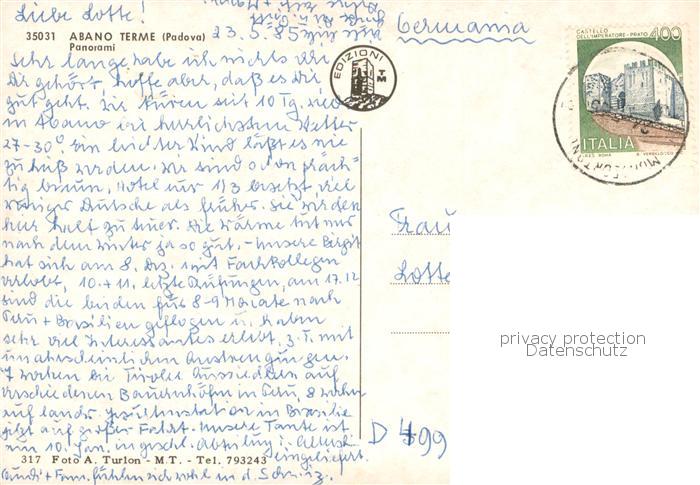 Liebe Lotte!
23.5.85
35031 ABANO TERME (Padova)
Panorami
Sehr lange habe ich nichts von
Dir gehört, hoffe aber, daß es Dir
gut geht. Wir kuren seit 10 Tg. hier
in Abano bei herrlichstem Wetter
27-30° ein leichter Wind läßt es nie
zu heiß werden. Wir sind schon präch-
tig braun, Hotel nur 1/3 besetzt, viel
weniger Deutsche als früher. Sie werden
hier halt zu teuer. Die Wärme tut nur
nach dem Winter ja so gut. - Unsere Birgit
hat sich am 8. Dez. mit Fachkollegen
verlobt, 10. + 11. letzte Prüfungen, am 17.12.
sind die beiden für 8-9 Monate nach
Peru + Brasilien geflogen u. haben
sehr viel Interessantes erlebt, z. T. mit
unwahrscheinlichen Anstrengungen.
7 Wochen bei Tiroler Aussiedlern auf
verschiedenen Bauernhöfen in Peru, 8 Wochen
auf landw. in Brasilien
jetzt auf großer Fahrt. Unsere Tante ist
am 10. Jan. in geschl. Abteilung
eingeliefert.
317 Foto A. Turlon - M.T. - Tel. 793243
+ Fam. fühlen sich wohl in d. Schweiz.
EDIZIONI
TM
Germania
CASTELLO
DELL'IMPERATORE - PRATO 400
ITALIA
Frau
Lotte
privacy protection
Datenschutz
D 499